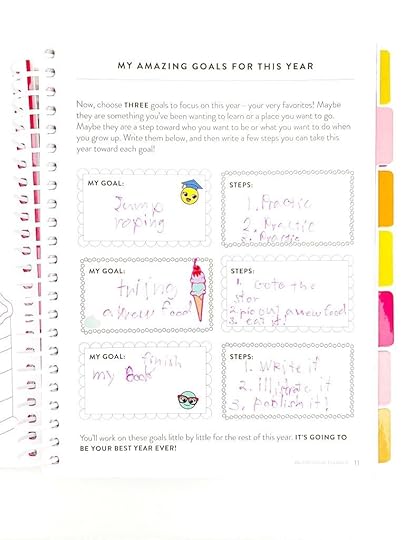 MY AMAZING GOALS FOR THIS YEAR
Now, choose THREE goals to focus on this year – your very favorites! Maybe
they are something you've been wanting to learn or a place you want to go.
Maybe they are a step toward who you want to be or what you want to do when
you grow up. Write them below, and then write a few steps you can take this
year toward each goal!
MY GOAL:
Jump
roping
STEPS:
1. Practic
2. Practic
3. Practic
MY GOAL:
trying
a new food
STEPS:
1. Goto the
stor
2. pic out a new food
3. eat it!
MY GOAL:
finish
my Book
STEPS:
1. Write it
2. Illstrate it
3. publish it!
You'll work on these goals little by little for the rest of this year. IT'S GOING TO
BE YOUR BEST YEAR EVER!
11